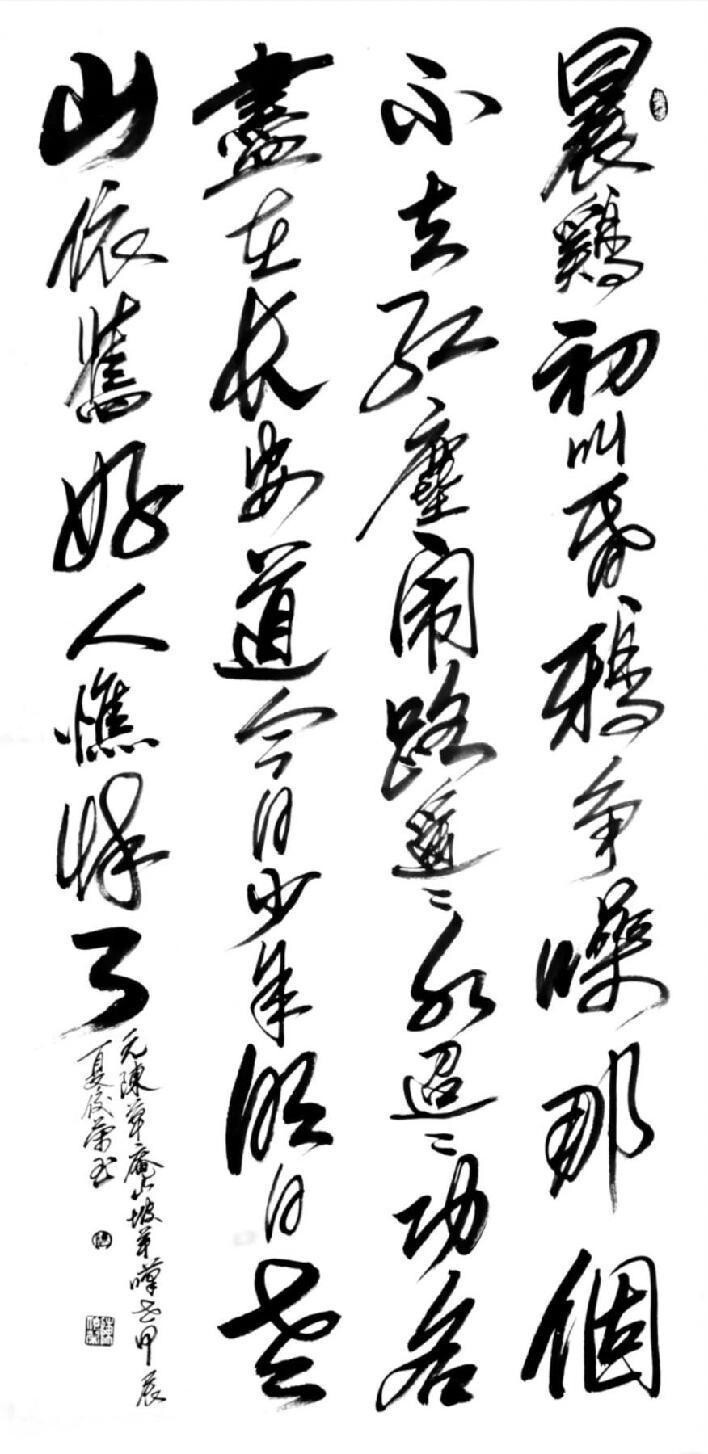 晨鷄初叫昏鴉争噪那個
不去紅塵闹路遥々水迢々功名
盡在長安道今日少年明日老
山依舊好人憔悴了
元陳草庵山坡羊嘆世甲辰
夏俊荣书